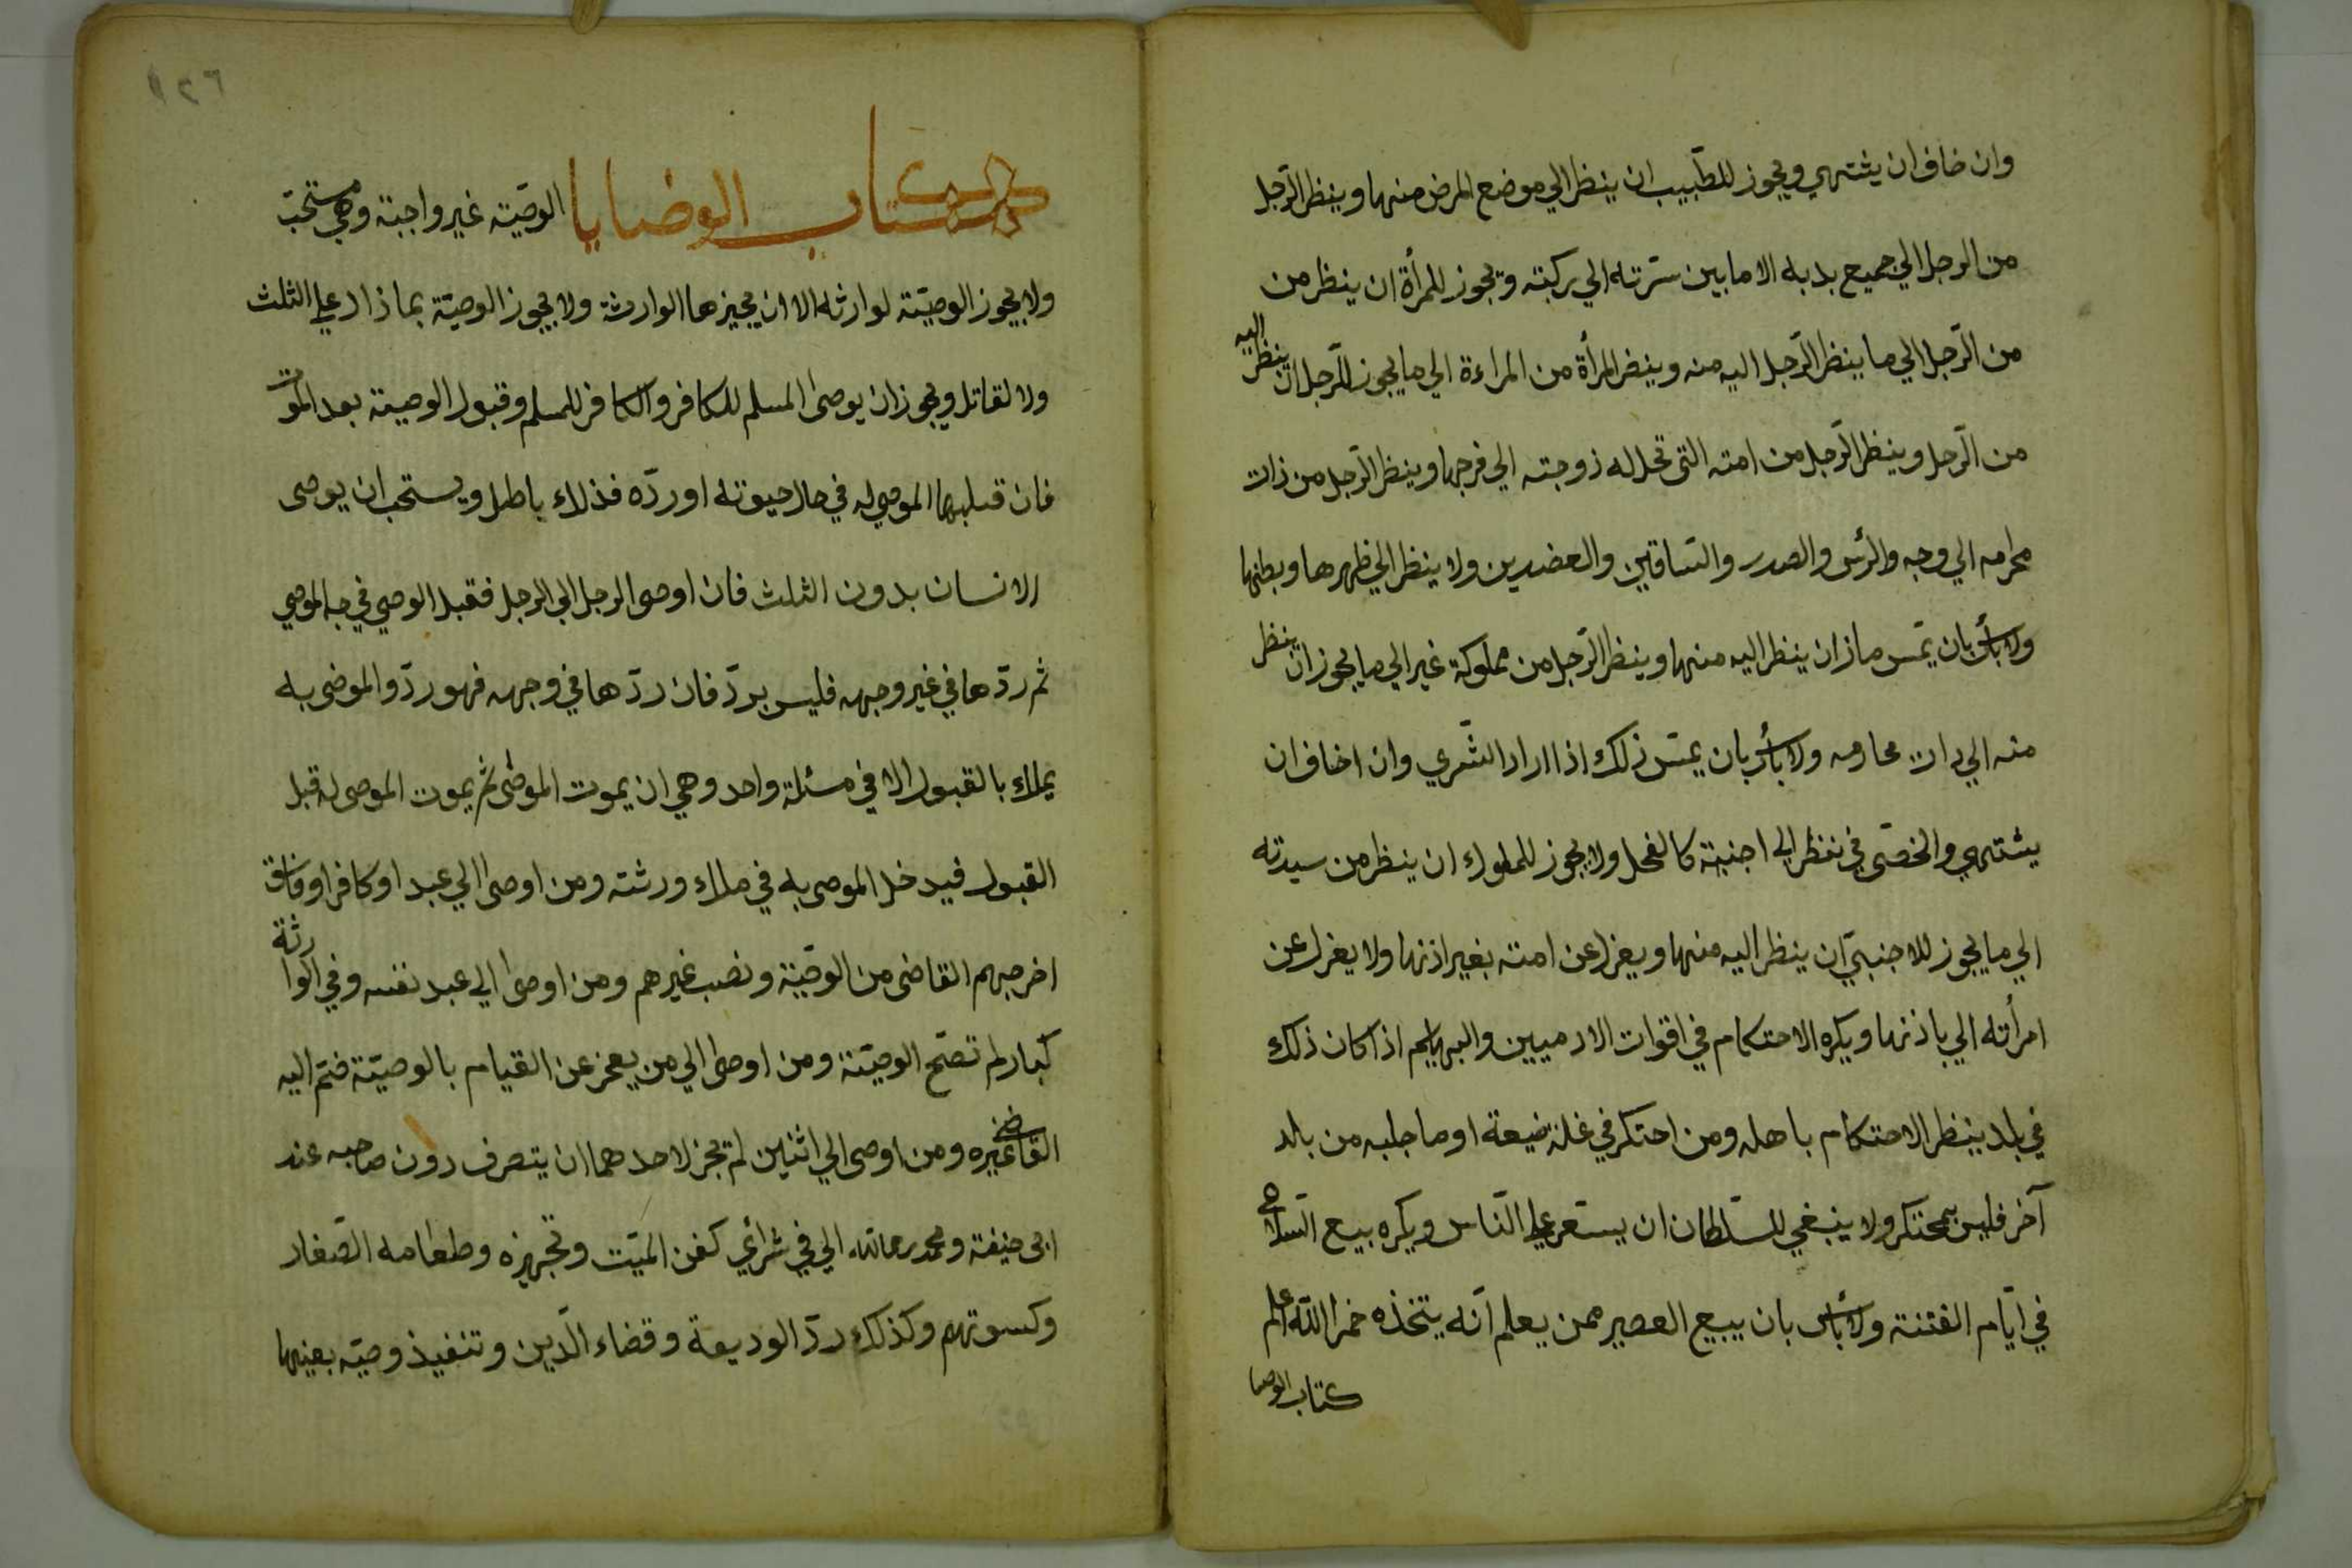 وان خاف ان يشتهي ويجوز للطّبيب ان ينظر الي موضع المرض منها وينظر الرّجل
من الرجل الي جميع بدبه الا ما بين سترته الي ركبته ويجوز للمرأة ان ينظر من
من الرّجل الي ما ينظر الرّجل اليه منه وينضر المرأة من المراءة الي ما يجوز للرّجل ان ينظر اليه
من الرّجل وينظر الرّجل من امته التى تحل له زوجته الي فرجها وينظر الرّجل من ذات
محرامه الي وجه والرئس والصدر والسّاقين والعضدين ولا ينظر الي ظهرها وبطنها
ولا بأس بان يمّس ماز ان ينظر اليه منها وينظر الرّجل من مملوكة غير الي ما يجوز ان ينظر
منه الي ذات محارمه ولا بأس بان يمسّ ذلك اذا اراد الشّرى وان اخاف ان
يشتهي والخصّى في نظر الي اجنبية كالفحل ولا يجوز للملوك ان ينظر من سيدته
الي ما يجوز للاجنبيّ ان ينظر اليه منها ويعزل عن امته بغير اذنها ولا يعزل عن
امرأته الي باذنها ويكره الاحتكام في اقوات الادميين والبهايم اذا كان ذلك
في بلد ينظر الاحتكام باهله ومن احتكر في غلة ضيعة او ما جلبه من بلد
آخر فليس بمحتكر ولا ينبغي للسّلطان ان يسعّر علي النّاس ويكره بيع السّلاح
في ايّام الفتنة ولا بأس بان يبيع العصير ممن يعلم انّه يتخذه خمرا اللّه اعلم
كتاب الوصا
١٢٦
كتاب الوضايا الوصيّة غير واجبة وهي مستحبّ
ولا يجوز الوصيّة لوارثه الا ان يجيزها الوارثة ولا يجوز الوصيّة بما ذاد علي الثلث
ولا لقاتل ويجوز ان يوصى المسلم للكافر والكافر للمسلم وقبول الوصية بعد الموت
فان قبلها الموصي له في حال حيوته او ردّه فذلك باطل ويستحب ان يوصى
الانسان بدون الثلث فان اوصى الرجل الي الرجل فقبل الوصي في وجه الموصي
ثم ردّها في غير وجهه فليس بردّ فان ردّها في وجهه فهو ردّ والموضى به
يملك بالقبول الا في مسئلة واحد وهي ان يموت الموضى ثم يموت الموصى له قبل
القبول فيدخل الموصى به في ملك ورثته ومن اوصى الي عبد او كافر او فاسق
اخرجهم القاضى من الوصيّة ونصب غيرهم ومن اوصى الي عبد نفسه وفي الوارثة
كبار لم تصّح الوصيّة ومن اوصى الي من يعجز عن القيام بالوصيّة ضمّ اليه
القاضى غيره ومن اوصى الي اثنين لم يجز لاحدهما ان يتصرف دون صاحبه عند
ابى حنيفة ومحمد رحمالله الي في شرائي كفن الميّت وتجهيزه وطعامه الصّغار
وكسوتهم وكذلك ردّ الوديعة وقضاء الدّين وتنفيذ وصيّه بعينها